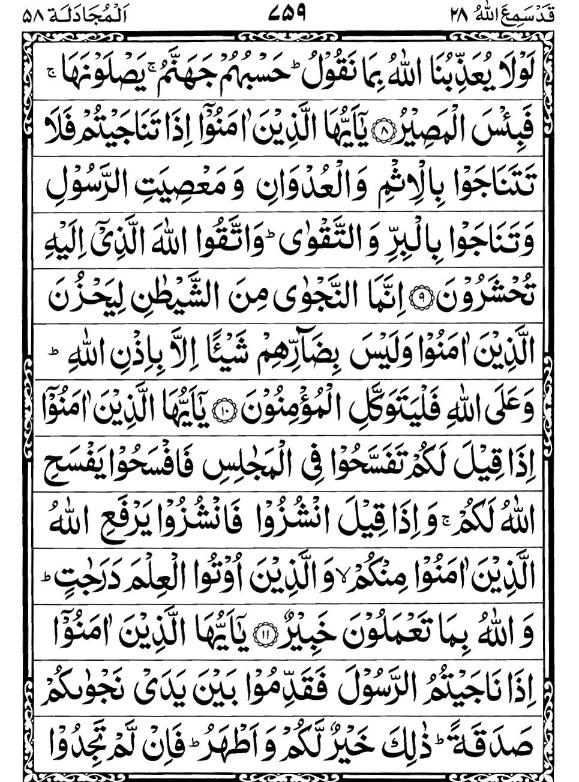 قَدْ سَمِعَ اللّٰهُ ۲۸ ۷۵۹ اَلْمُجَادَلَة ۵۸
لَوْلَا يُعَذِّبُنَا اللّٰهُ بِمَا نَقُوْلُ ؕ حَسْبُهُمْ جَهَنَّمُ ۚ يَصْلَوْنَهَا ۚ
فَبِئْسَ الْمَصِيْرُ ۸ يٰۤاَيُّهَا الَّذِيْنَ اٰمَنُوْۤا اِذَا تَنَاجَيْتُمْ فَلَا
تَتَنَاجَوْا بِالْاِثْمِ وَالْعُدْوَانِ وَمَعْصِيَتِ الرَّسُوْلِ
وَتَنَاجَوْا بِالْبِرِّ وَالتَّقْوٰى ؕ وَاتَّقُوا اللّٰهَ الَّذِيْۤ اِلَيْهِ
تُحْشَرُوْنَ ۹ اِنَّمَا النَّجْوٰى مِنَ الشَّيْطٰنِ لِيَحْزُنَ
الَّذِيْنَ اٰمَنُوْا وَلَيْسَ بِضَآرِّهِمْ شَيْئًا اِلَّا بِاِذْنِ اللّٰهِ ؕ
وَعَلَى اللّٰهِ فَلْيَتَوَكَّلِ الْمُؤْمِنُوْنَ ۱۰ يٰۤاَيُّهَا الَّذِيْنَ اٰمَنُوْۤا
اِذَا قِيْلَ لَكُمْ تَفَسَّحُوْا فِى الْمَجٰلِسِ فَافْسَحُوْا يَفْسَحِ
اللّٰهُ لَكُمْ ۚ وَاِذَا قِيْلَ انْشُزُوْا فَانْشُزُوْا يَرْفَعِ اللّٰهُ
الَّذِيْنَ اٰمَنُوْا مِنْكُمْ ۙ وَالَّذِيْنَ اُوْتُوا الْعِلْمَ دَرَجٰتٍ ؕ
وَاللّٰهُ بِمَا تَعْمَلُوْنَ خَبِيْرٌ ۱۱ يٰۤاَيُّهَا الَّذِيْنَ اٰمَنُوْۤا
اِذَا نَاجَيْتُمُ الرَّسُوْلَ فَقَدِّمُوْا بَيْنَ يَدَىْ نَجْوٰىكُمْ
صَدَقَةً ؕ ذٰلِكَ خَيْرٌ لَّكُمْ وَاَطْهَرُ ؕ فَاِنْ لَّمْ تَجِدُوْا